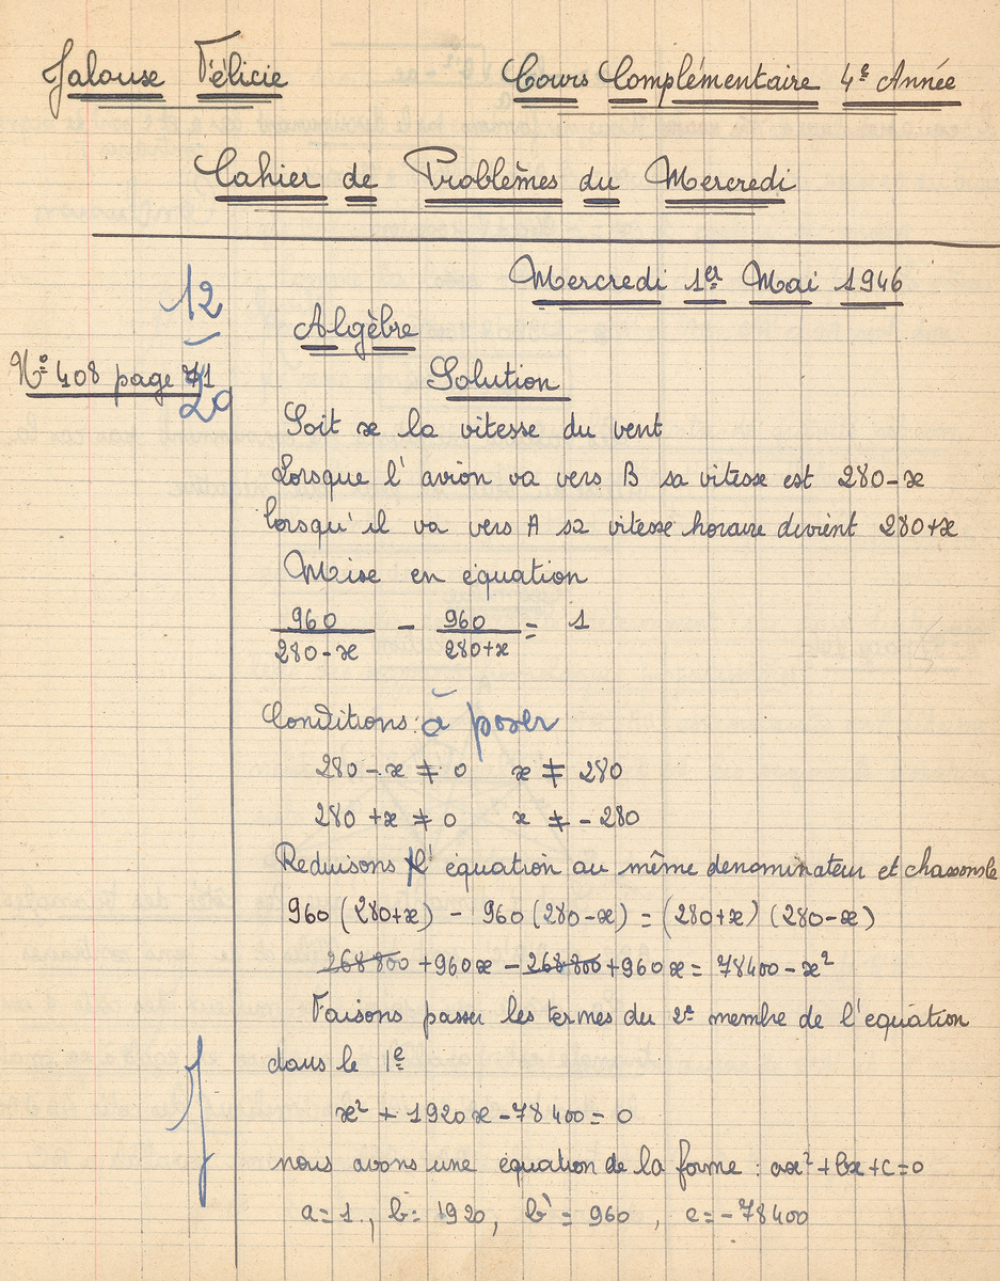 Jalouse Félicie
Cours Complémentaire 4e Année
Cahier de Problèmes du Mercredi
Mercredi 1er Mai 1946
12
20
Algèbre
N° 408 page 71
Solution
Soit x la vitesse du vent
Lorsque l'avion va vers B sa vitesse est 280-x
lorsqu'il va vers A sa vitesse horaire devient 280+x
Mise en équation
960/280-x - 960/280+x = 1
Conditions: à poser
280-x ≠ 0 x ≠ 280
280+x ≠ 0 x ≠ -280
Reduisons l'équation au même denominateur et chassons le
960 (280+x) - 960 (280-x) = (280+x) (280-x)
268800 +960x - 268800 +960x = 78400 - x²
Faisons passer les termes du 2e membre de l'equation
dans le 1e
x² + 1920x - 78400 = 0
nous avons une équation de la forme : ax² + bx + c = 0
a=1, b= 1920, b' = 960, c=-78400